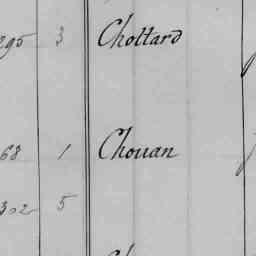 295 3 Choltard
68 1 Chouan
302 5